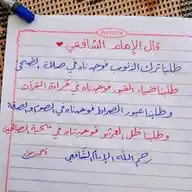 قال الإمام الشافعي
طلبنا ترك الذنوب فوجدناه في صلاة الضحى
طلبنا ضياء القبور فوجدناه في قراءة القرآن
وطلبنا عبور الصراط فوجدناه في الصوم والصدقة
وطلبنا ظل العرش فوجدناه في صحبة الصالحين
رحم الله الإمام الشافعي